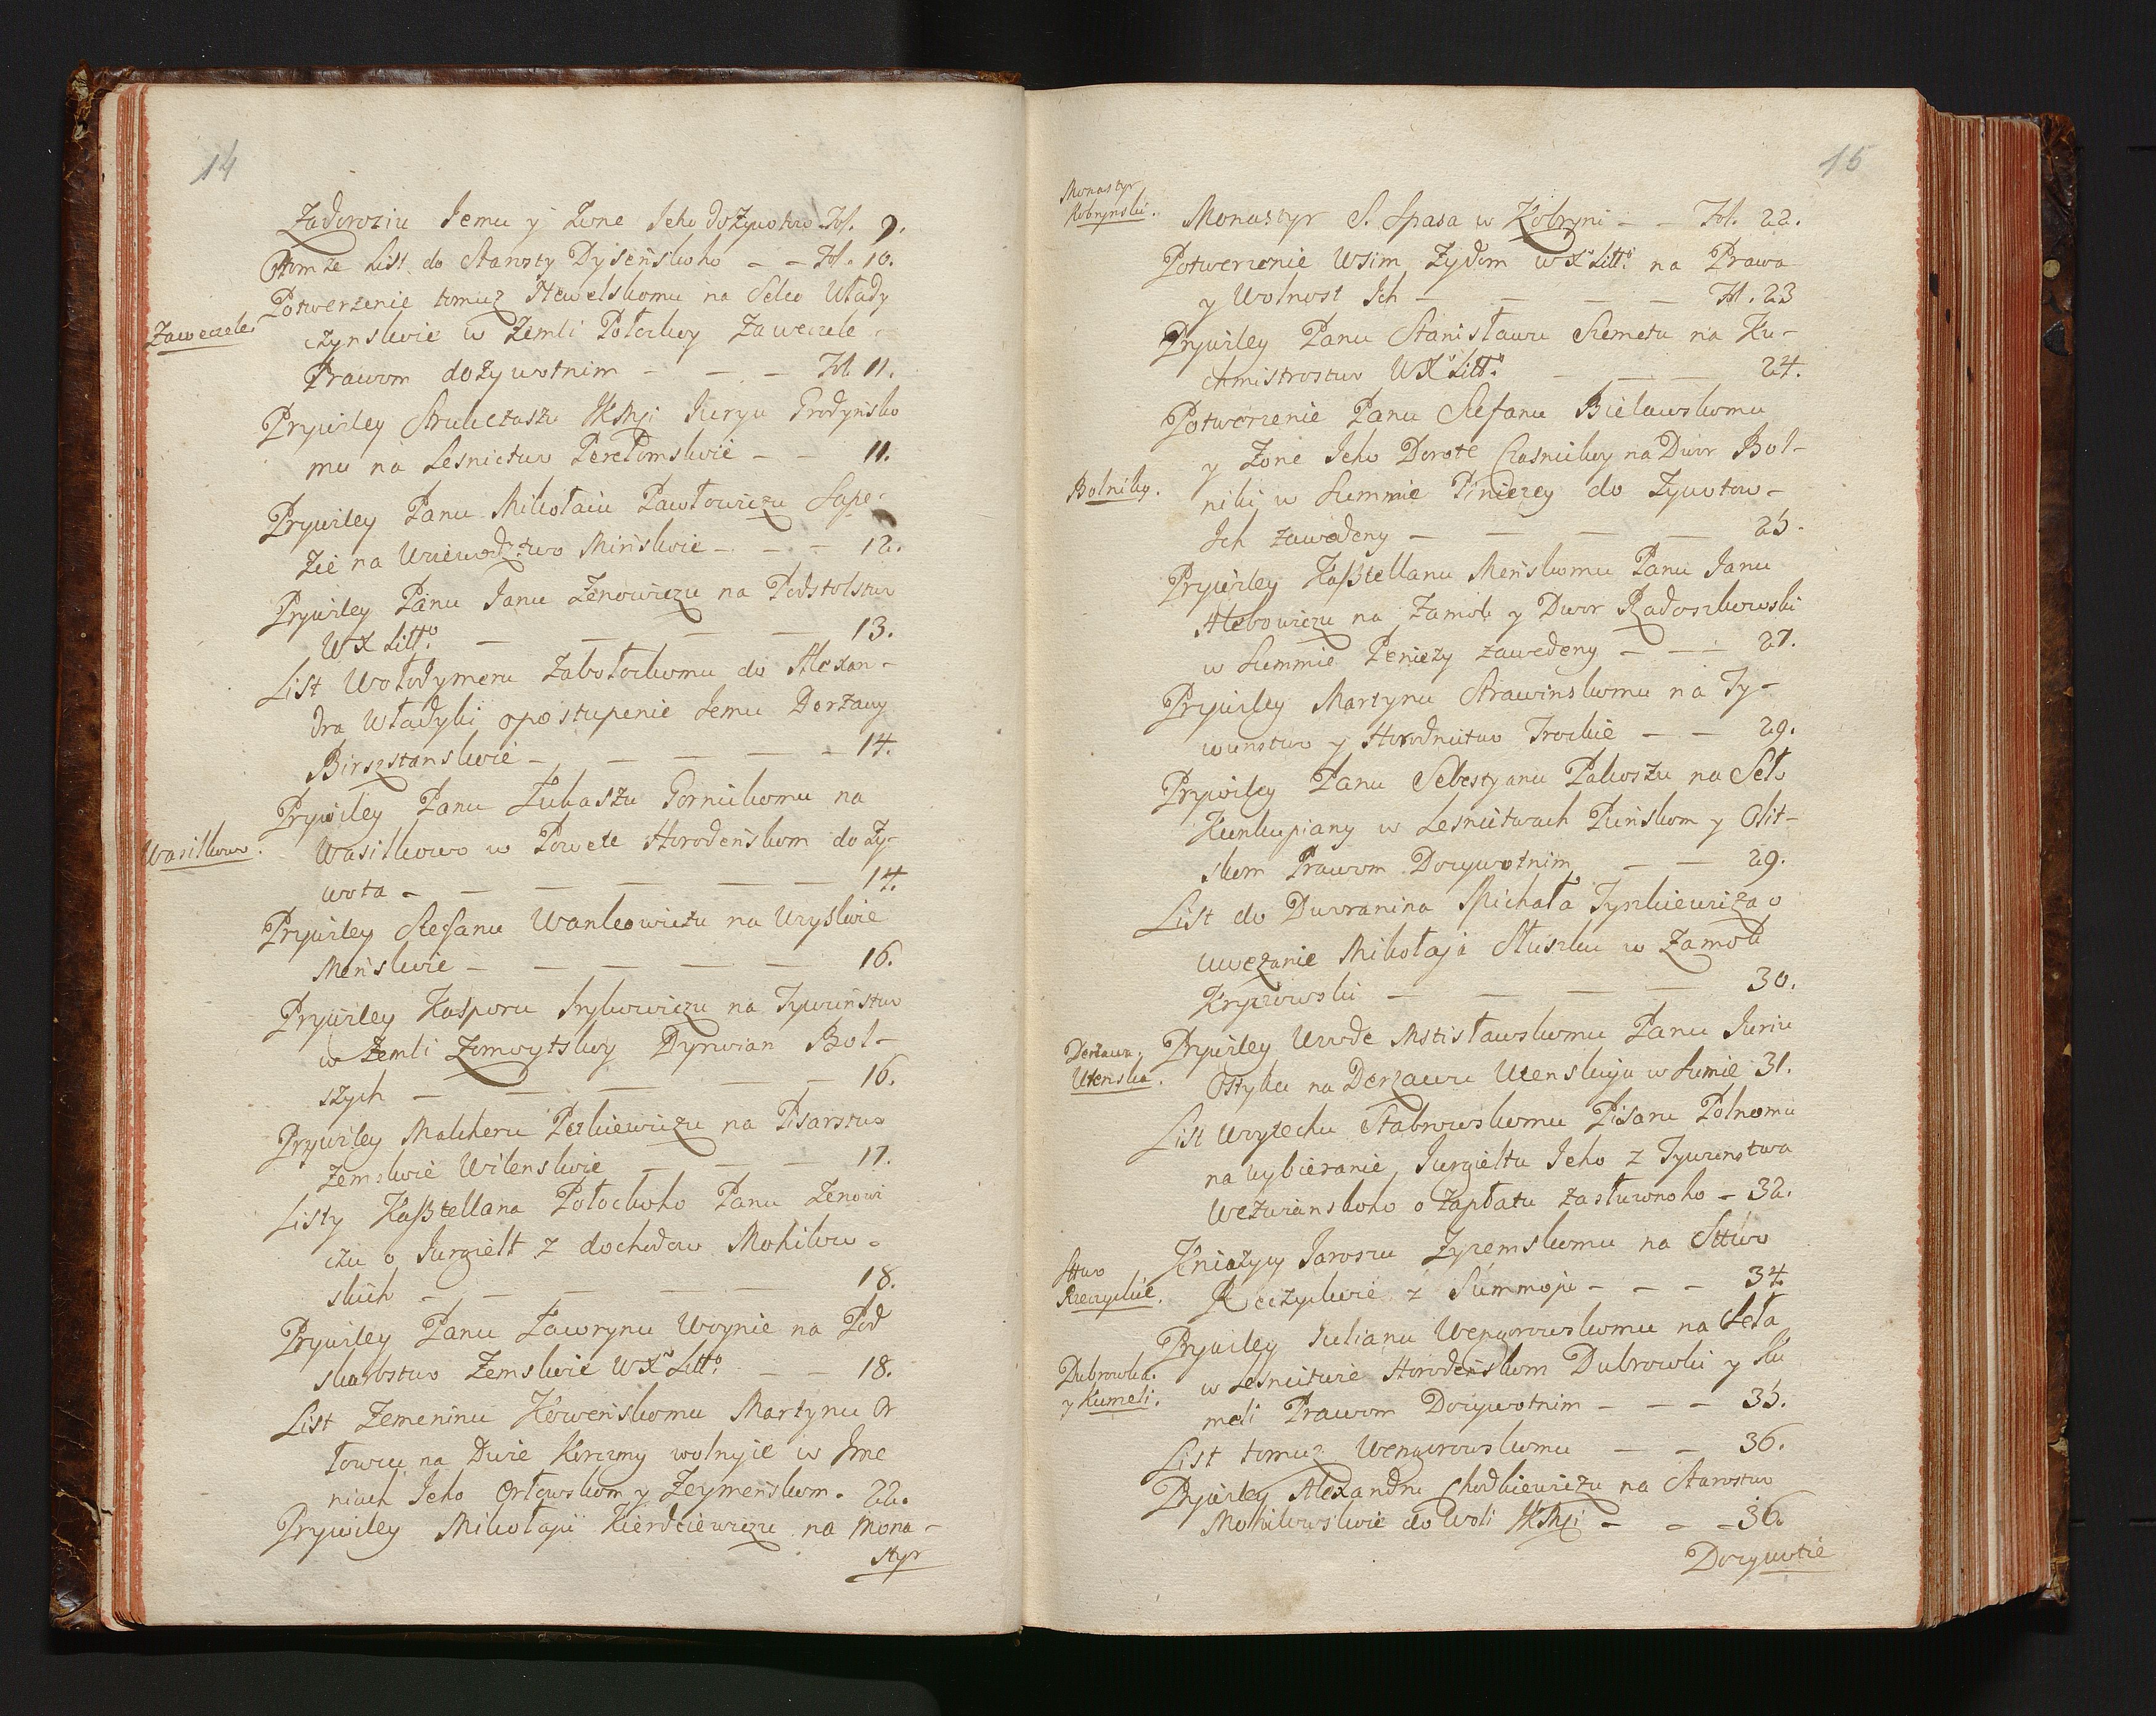 14
Zadoroziu Jemu y Zone Jeho dożywotno Fol. 9.
O tom że List do Starosty Dyseńskoho - - Fol. 10.
Potwerzenie tomuż Stewelskomu na Seleo Wlady
Zaweczele
czynskoie w Zemli Połockoy Zaweczele
Prawom dożywotnim - - - Fol. 11.
Prywiley Strukczaszu JKMci Juryu Grodyńsko
mu na Lesnictwo Perełomskoie - - 11.
Prywiley Panu Mikołaiu Pawłowiczu Sape-
zie na Woiewodztwo Mińskoie - - - 12.
Prywiley Panu Janu Zenowiczu na Podstolstwo
WX Litt° - - - - 13.
List Wołodymeru Zabołockomu do Alexan-
dra Władyki o postupenie Jemu Derżawy
Birsztanskoie - - - - 14.
Prywiley Panu Łukaszu Gornickomu na
Wasilkowo.
Wasilkowo w Powete Horodeńskom do Ży-
wota - - - - - - 14.
Prywiley Stefanu Wankowiczu na Wryskoie
Meńskoie - - - - - 16.
Prywiley Kasporu Irykowiczu na Tywuństwo
w Zemli Zomoytskoy Dyrwian Bol-
szych - - - - - 16.
Prywiley Malcheru Petkiewiczu na Pisarstwo
Zemskoie Wilenskoie - - - 17.
Listy Kasztellana Połockoho Panu Zenowi
czu o Jurgielt z dochodow Mohilow-
skich - - - - - 18.
Prywiley Panu Ławrynu Woynie na Pod
skarbstwo Zemskoie WX° Litt° - - 18.
List Zemeninu Kowenskomu Martynu Or
łowcu na Dwie Korczmy wolnyie w Ime
niach Jeho Orłowskom y Zeymeńskom. 22.
Prywiley Mikołaju Kierdeiewiczu na Mona-
styr
15
Monastyr
Kobrynski.
Monastyr S. Spasa w Kobryni - - Fol. 22.
Potwerzenie Wsim Żydom w X° Litt° na Prawa
y Wolnost Ich - - - - Fol. 23
Prywiley Panu Stanisławu Szemetu na Ku-
chmistrostwo WX° Litt° - - - 24.
Potwerzenie Panu Stefanu Bielawskomu
y Zone Jeho Dorote Czasnickoy na Dwor Bol-
Bolniky.
niki w Summie Pineżey do Żywotow-
Ich zawedeny - - - - 25.
Prywiley Kasztellanu Meńskomu Panu Janu
Hlebowiczu na Zamok y Dwor Radoszkowski
w Summie Penieży zawedeny - - - 27.
Prywiley Martynu Strawinskomu na Ty-
wunstwo y Horodnictwo Trockie - - 29.
Prywiley Panu Sebestyanu Pakoszu na Seło
Kunkupiany w Lesnictwach Puńskom y Olit-
skom Prawom Dożywotnim - - 29.
List do Dworanina Michała Tyszkiewicza o
uwęzanie Mikołaja Słuszku w Zamok
Kryczowski - - - - 30.
Derżawa
Utenska.
Prywiley Wwode Mstisławskomu Panu Juriu
Ostyku na Derzawu Utenskuju w Sumie 31.
List Woytechu Stabrowskomu Pisaru Polnomu
na wybieranie Jurgieltu Jeho z Tywunstwa
Wezwianskoho o zapłatu zasłuwnoho - 32.
Sttwo
Rzeczyckie.
Kniażyy Jaroszu Żyżemskomu na Sttwo
Reczyckoie z Summoju - - - 34.
Prywiley Julianu Wengorowskomu na Seła
Dubrowka.
y Kumeli.
w Lesnictwie Horodeńskom Dubrowki y Ku
meli Prawom Dożywotnim - - - 35.
List tomuz Wengorowskomu - - 36.
Prywiley Alexandru Chodkiewiczu na Starostwo
Mohilowskoie do Woli JKMci - - - 36.
Dożywotie